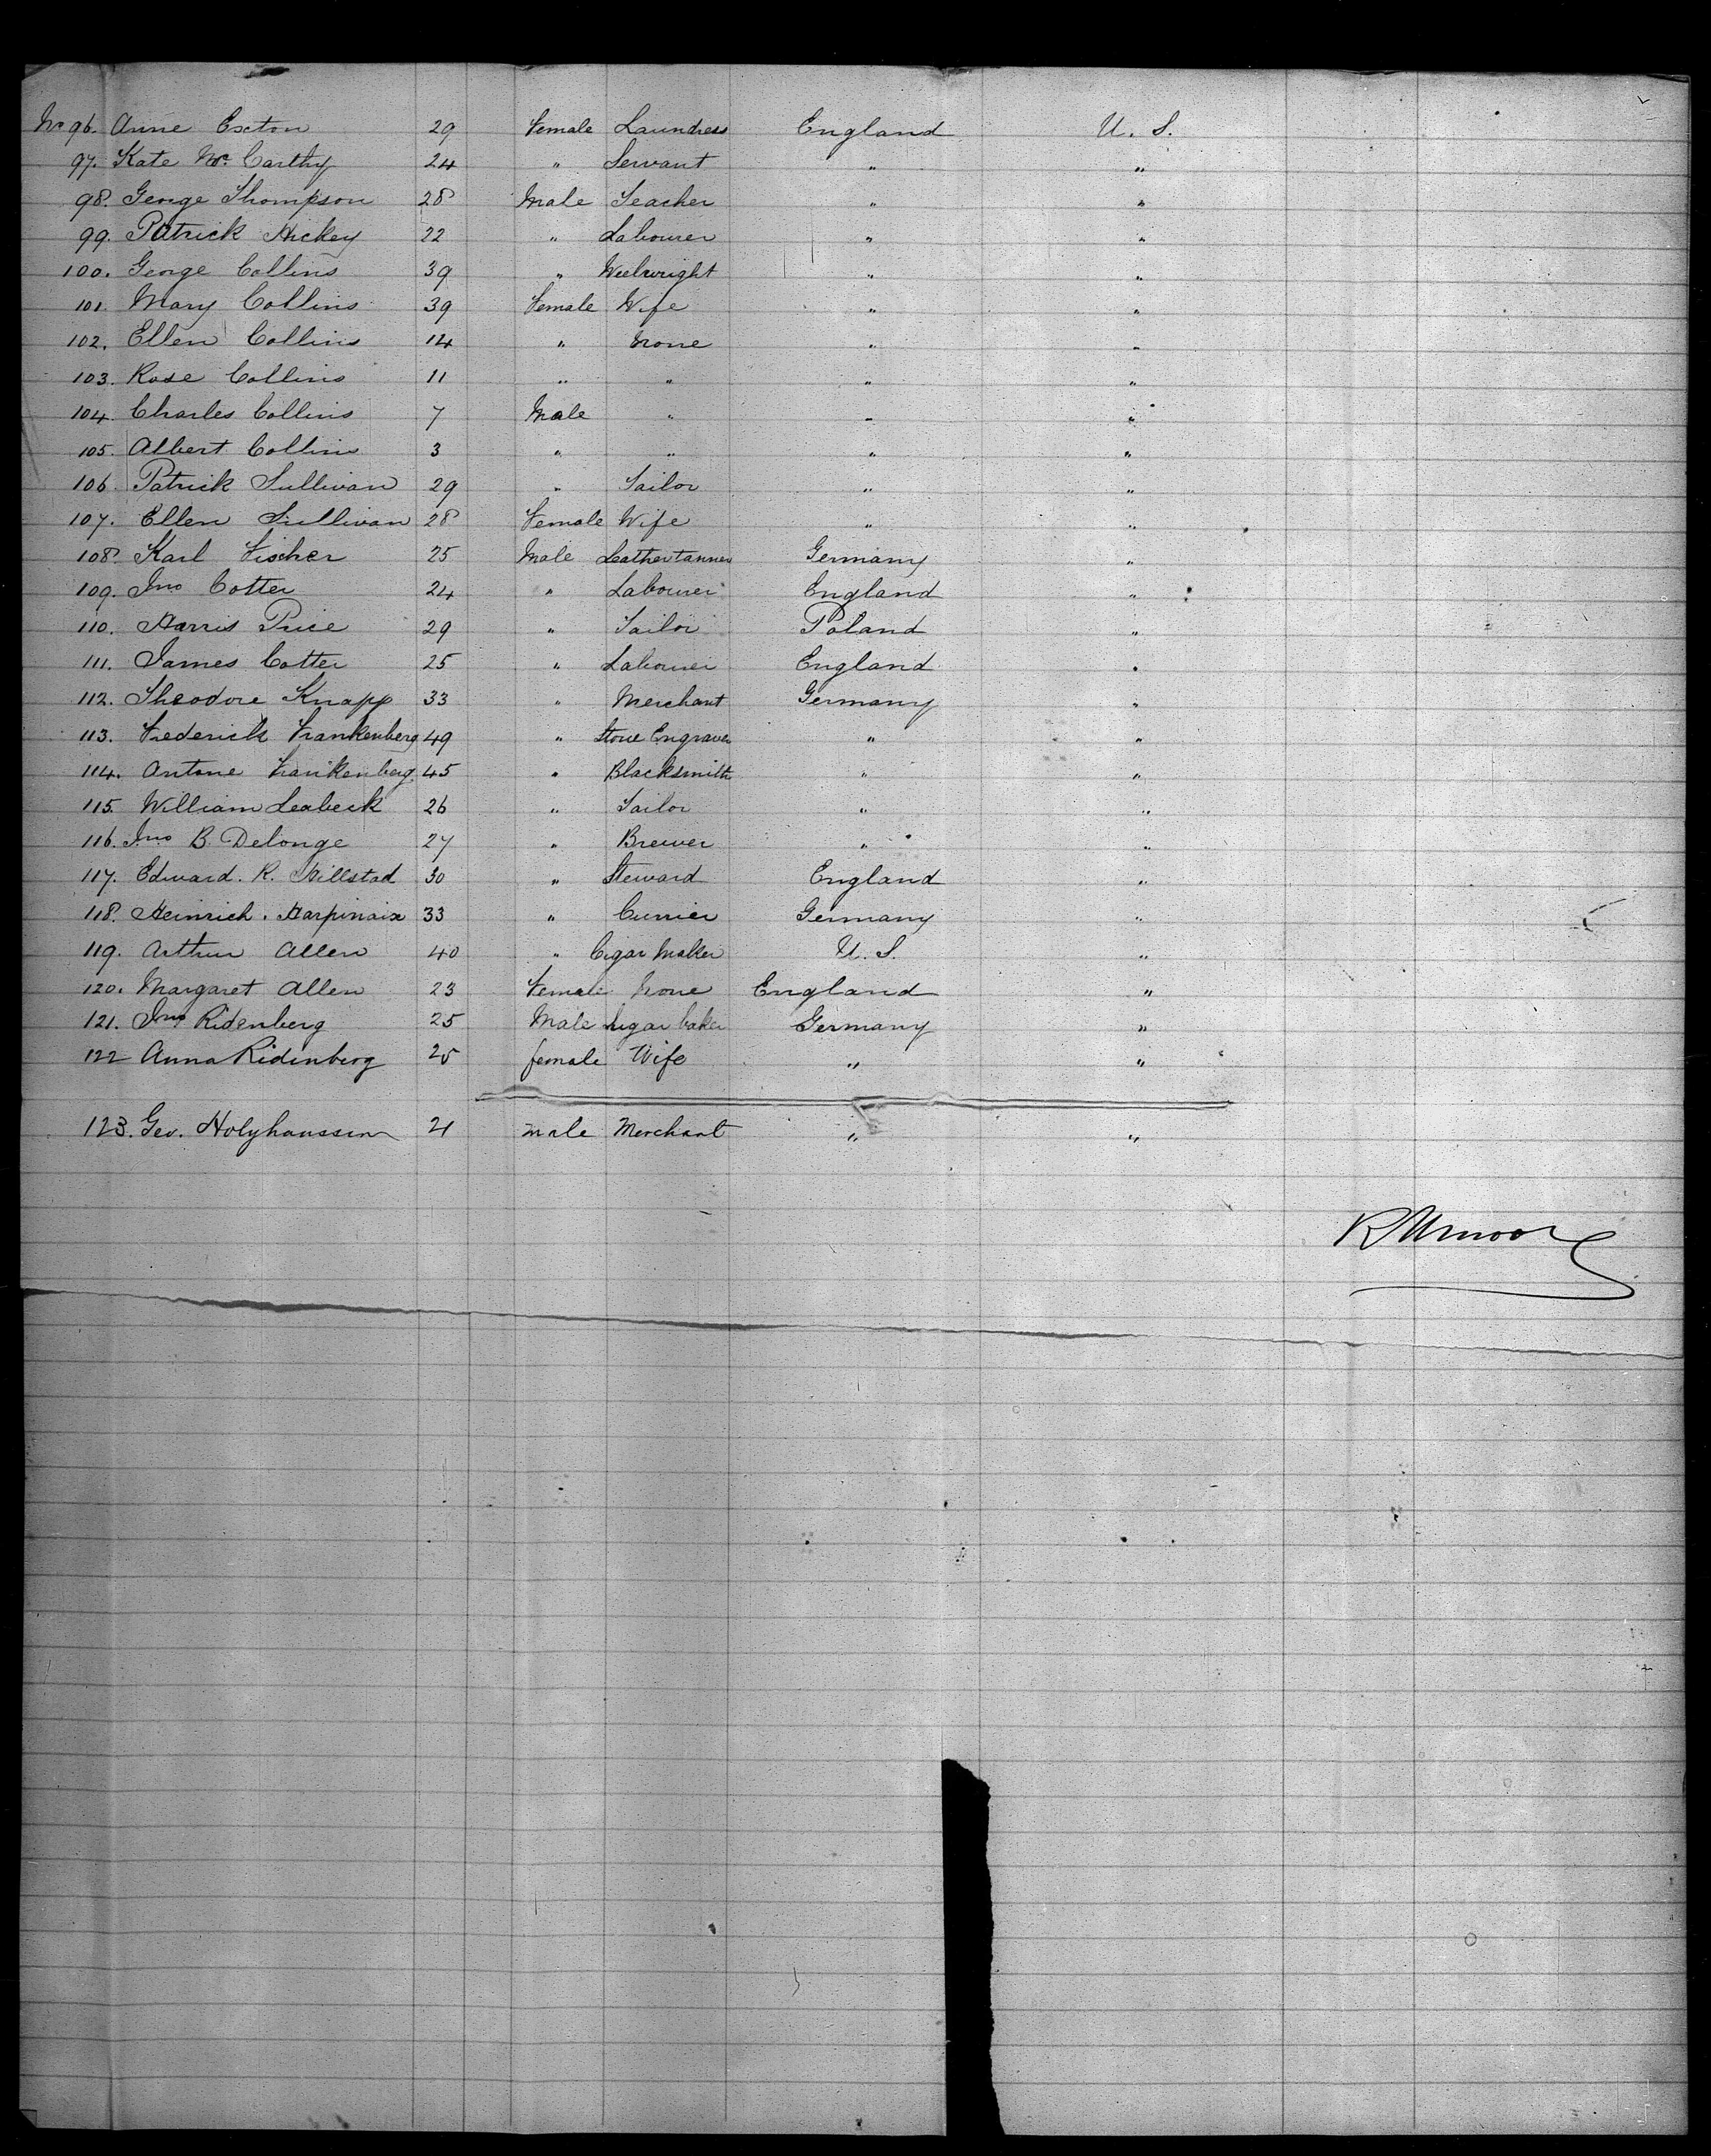 No 96. Anne Exton 29 Female Laundress England U. S.
97. Kate Mc Carthy 24 " Servant " "
98. George Thompson 28 Male Teacher " "
99. Patrick Hickey 22 " Labourer " "
100. George Collins 39 " Weelwright " "
101. Mary Collins 39 Female Wife " "
102. Ellen Collins 14 " None " "
103. Rose Collins 11 " " " "
104. Charles Collins 7 Male " " "
105. Albert Collins 3 " " " "
106. Patrick Sullivan 29 " Tailor " "
107. Ellen Sullivan 28 Female Wife " "
108. Karl Fischer 25 Male Leather tanner Germany "
109. Jno Cotter 24 " Labourer England "
110. Harris Price 29 " Tailor Poland "
111. James Cotter 25 " Labourer England "
112. Theodore Knapp 33 " Merchant Germany "
113. Frederick Frankenberg 49 " Stone Engraver " "
114. Antone Frankenberg 45 " Blacksmith " "
115. William Leabeck 26 " Tailor " "
116. Jno B. Delonge 27 " Brewer " "
117. Edward. R. Hillstad 30 " Steward England "
118. Heinrich. 33 " Currier Germany "
119. Arthur Allen 40 " Cigar Maker U. S. "
120. Margaret Allen 23 Female None England "
121. Jno Ridenberg 25 Male Sugar baker Germany "
122 Anna Ridenberg 25 female Wife " "
123. Geo. Holyhaussen 21 male Merchant " "